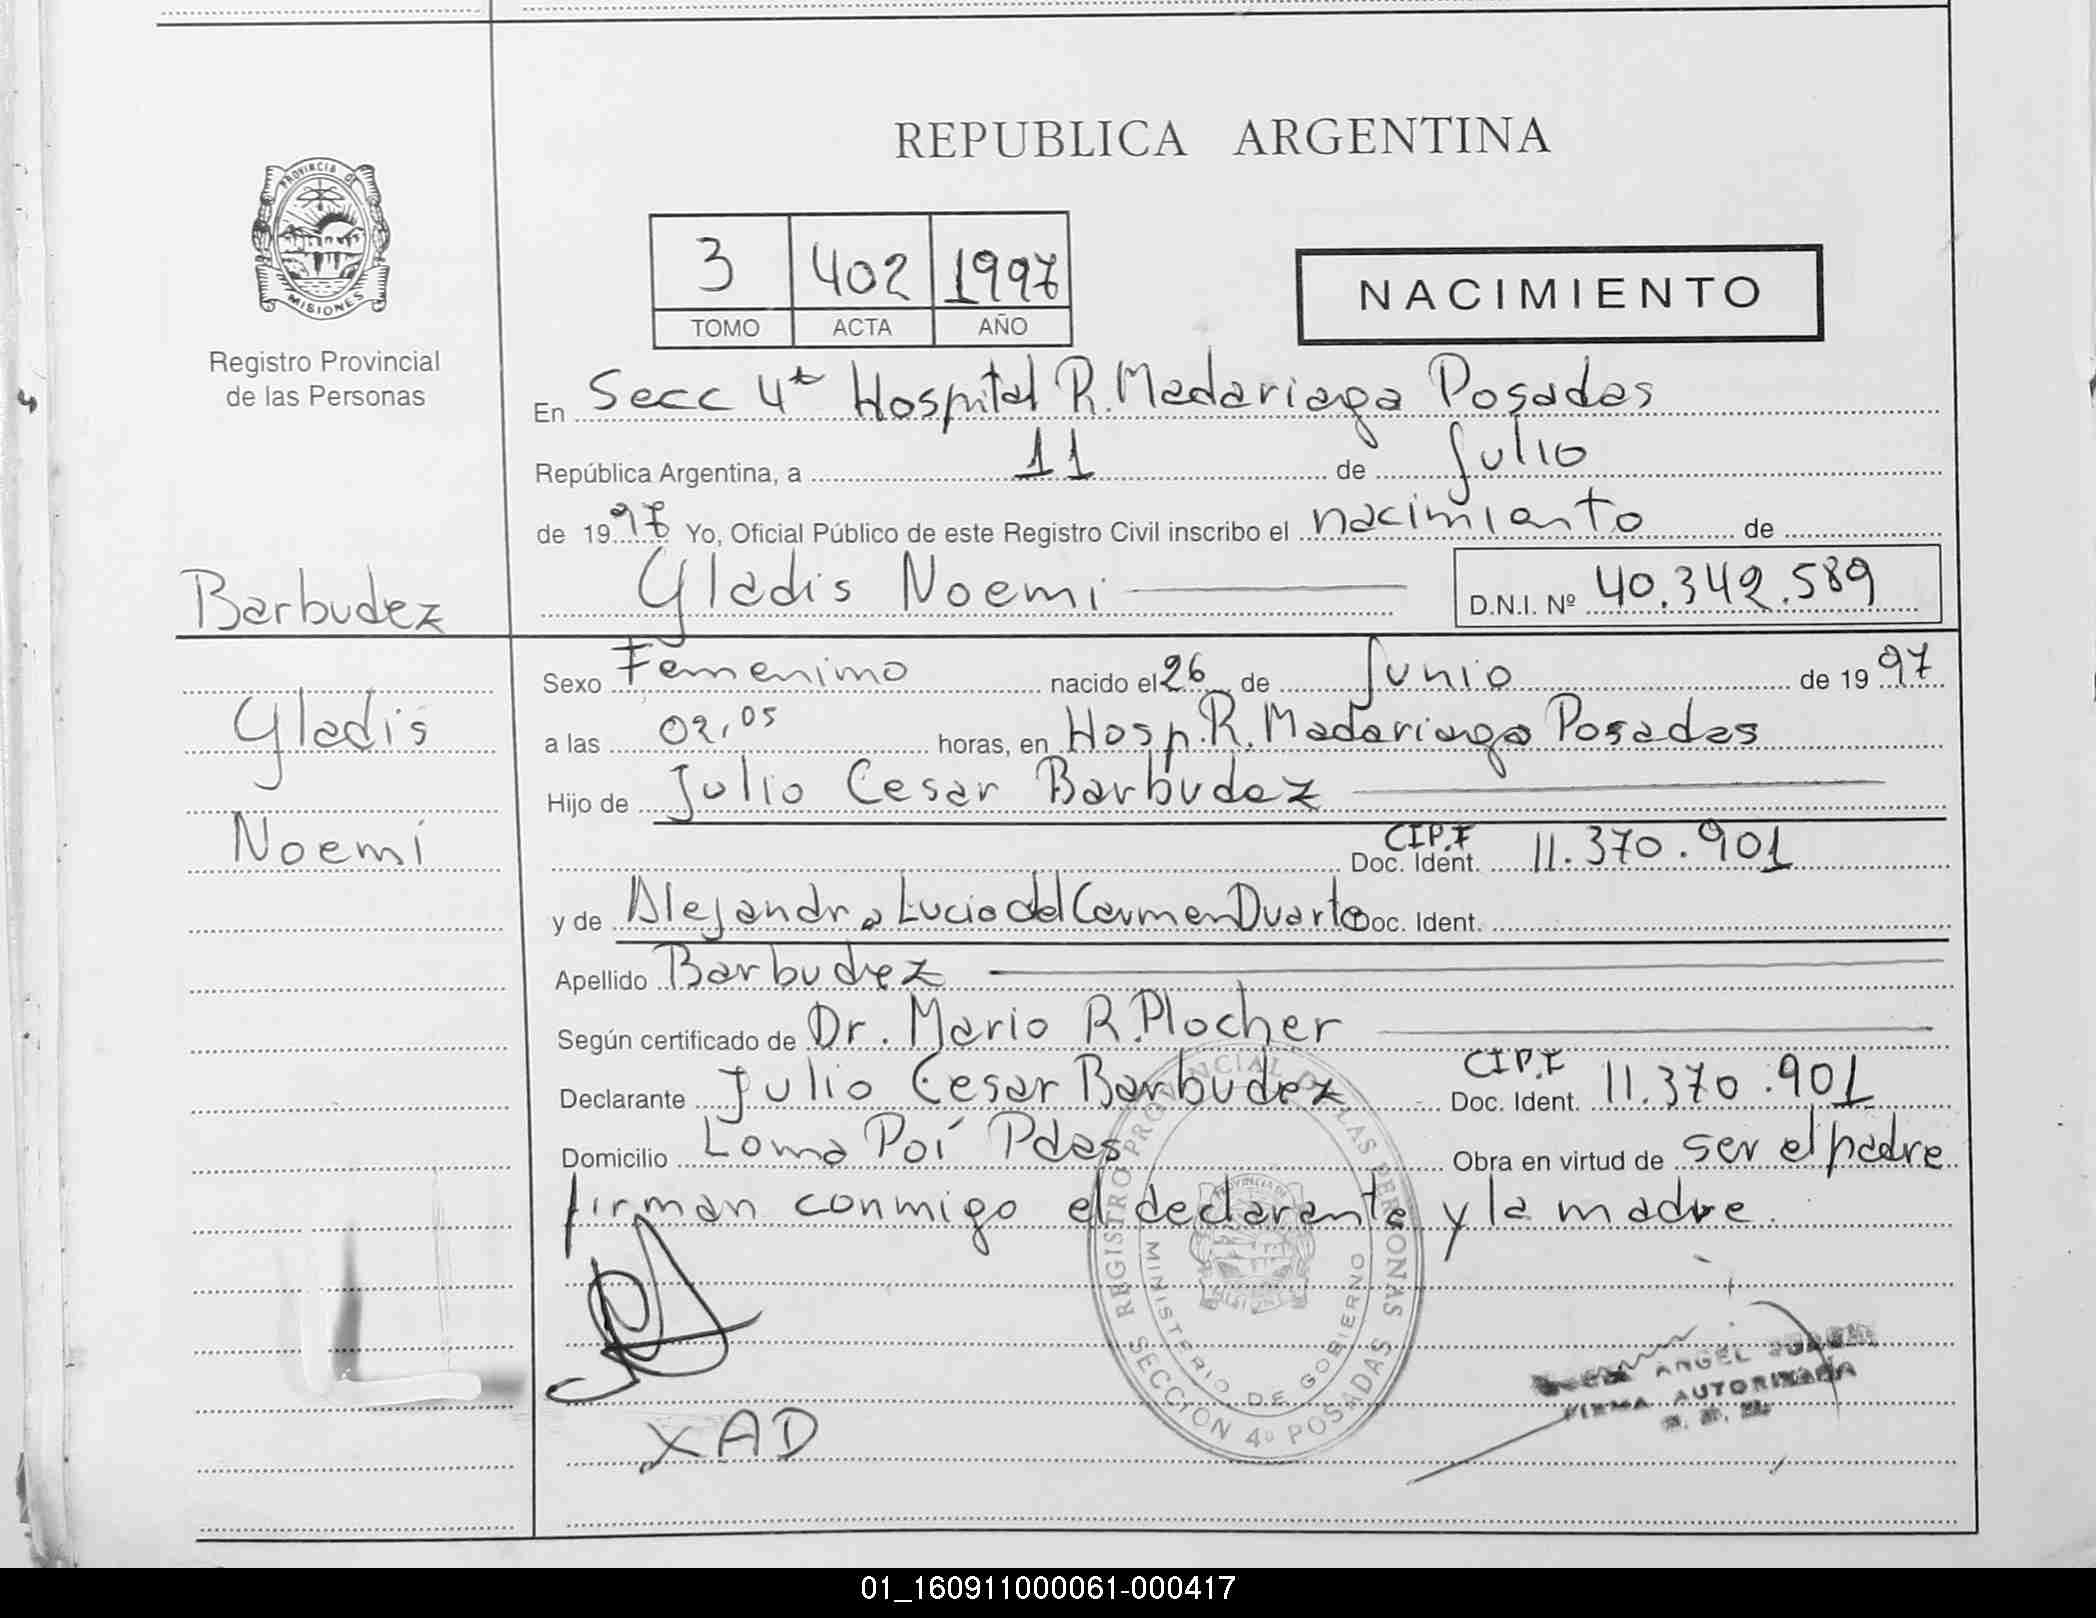 REPUBLICA ARGENTINA
PROVINCIA DE
MISIONES
Registro Provincial
de las Personas
3 402 1997
TOMO ACTA AÑO
NACIMIENTO
En Secc 4ta Hospital R. Madariaga Posadas
República Argentina, a 11 de Julio
de 1997 Yo, Oficial Público de este Registro Civil inscribo el nacimiento de
Gladis Noemi D.N.I. Nº 40.342.589
Barbudez
Gladis
Noemí
Sexo Femenino nacido el 26 de Junio de 1997
a las 02,05 horas, en Hosp. R. Madariaga Posadas
Hijo de Julio Cesar Barbudez
CIP.F
Doc. Ident. 11.370.901
y de Alejandra Lucia del Carmen Duarte Doc. Ident.
Apellido Barbudez
Según certificado de Dr. Mario R. Plocher
Declarante Julio Cesar Barbudez CIP.F Doc. Ident. 11.370.901
Domicilio Loma Poí Pdas Obra en virtud de ser el padre
firman conmigo el declarante y la madre.
REGISTRO PROVINCIAL DE LAS PERSONAS
SECCION 4º POSADAS
MINISTERIO DE GOBIERNO
ANGEL
FIRMA AUTORIZADA
XAD
01_160911000061-000417